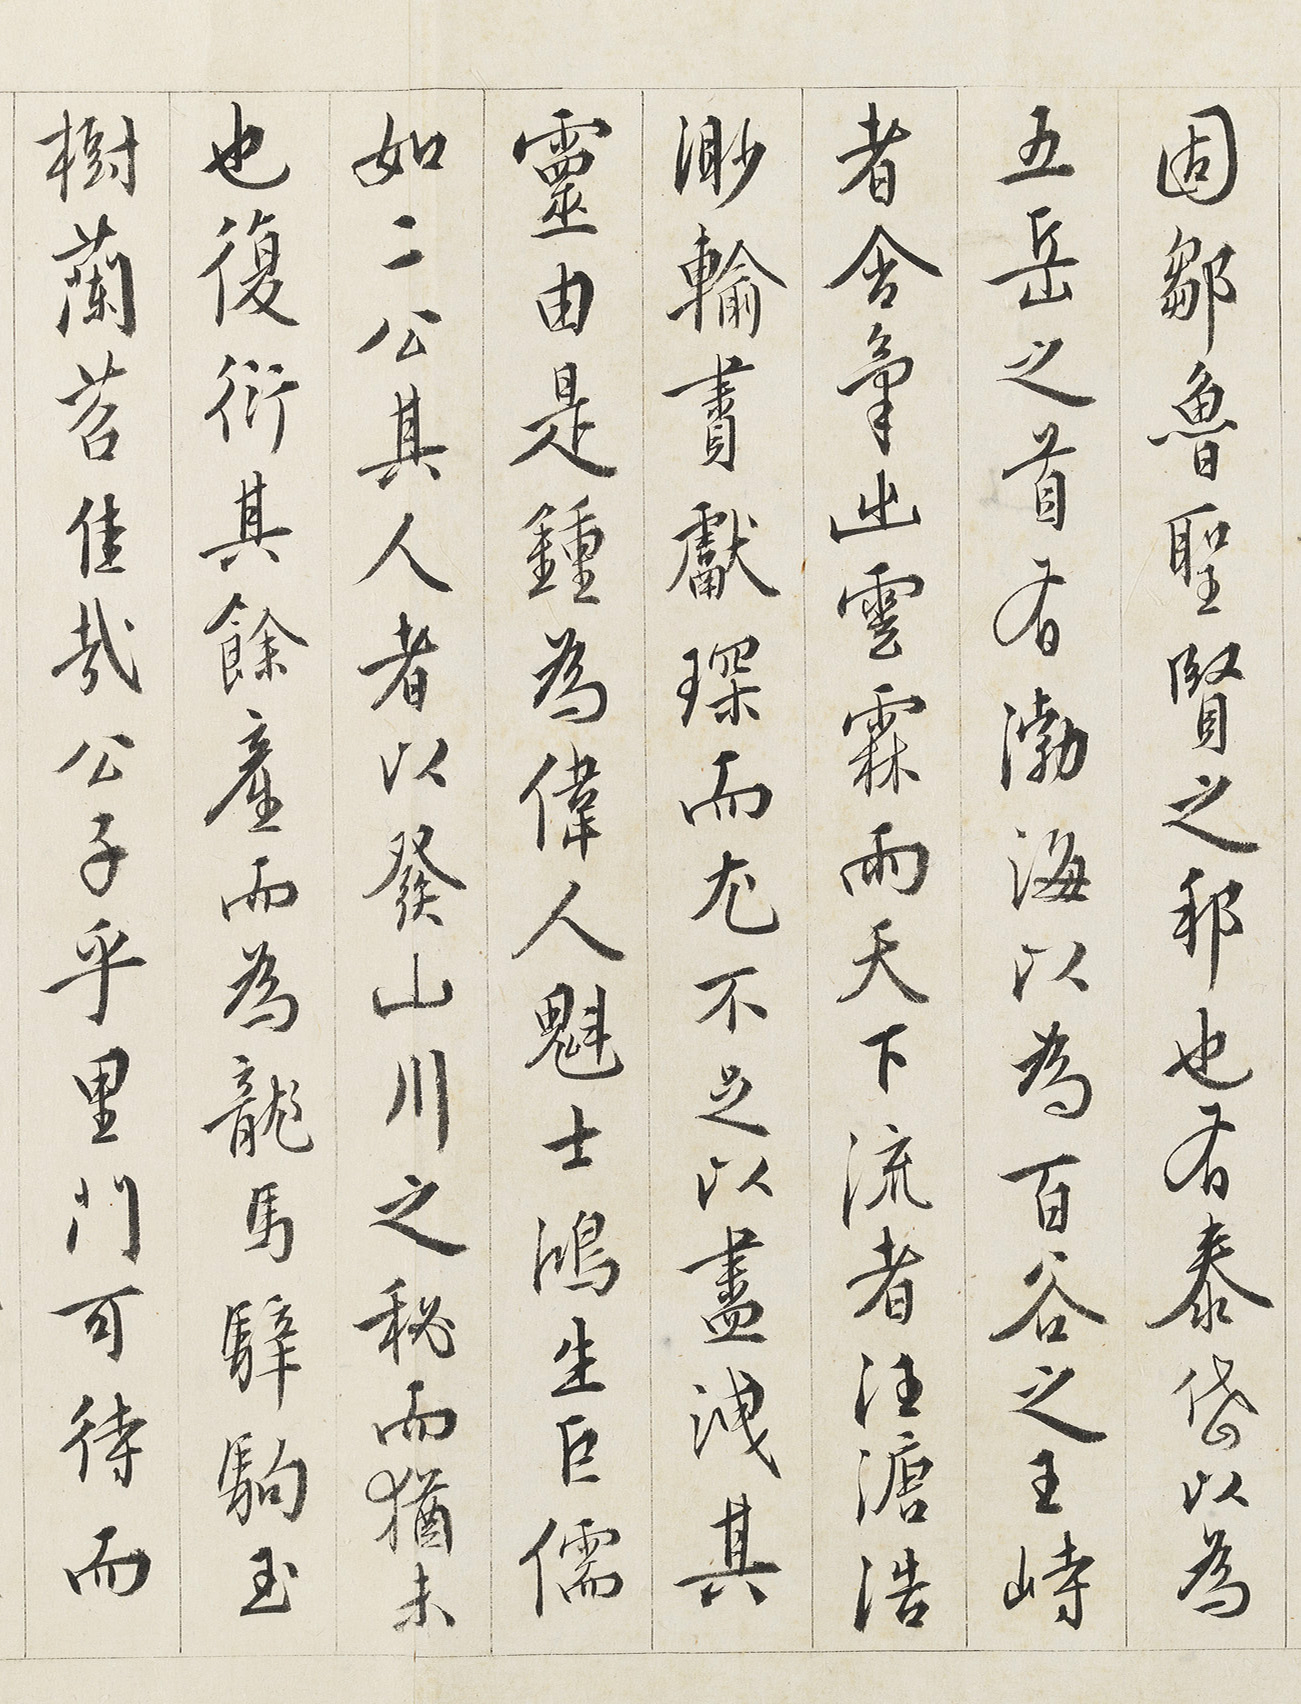 固鄒魯聖賢之邦也有泰岱以為
五岳之首有渤海以為百谷之王峙
者含氣出雲霖雨天下流者汪濊浩
渺輸賮獻琛而尤不足以盡洩其
靈由是鍾為偉人魁士鴻生巨儒
如二公其人者以發山川之秘而猶未
也復衍其餘產而為龍馬騂駒玉
樹蘭苕佳哉公子乎里門可待而